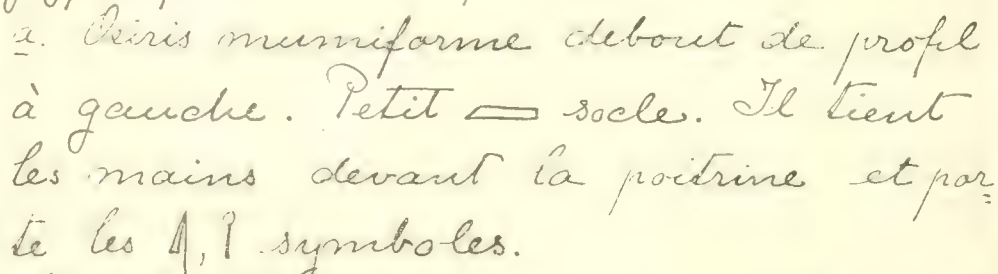 a. Osiris mumiforme debout de profil
à gauche. Petit ▭ socle. Il tient
les mains devant la poitrine et por=
te les , symboles.